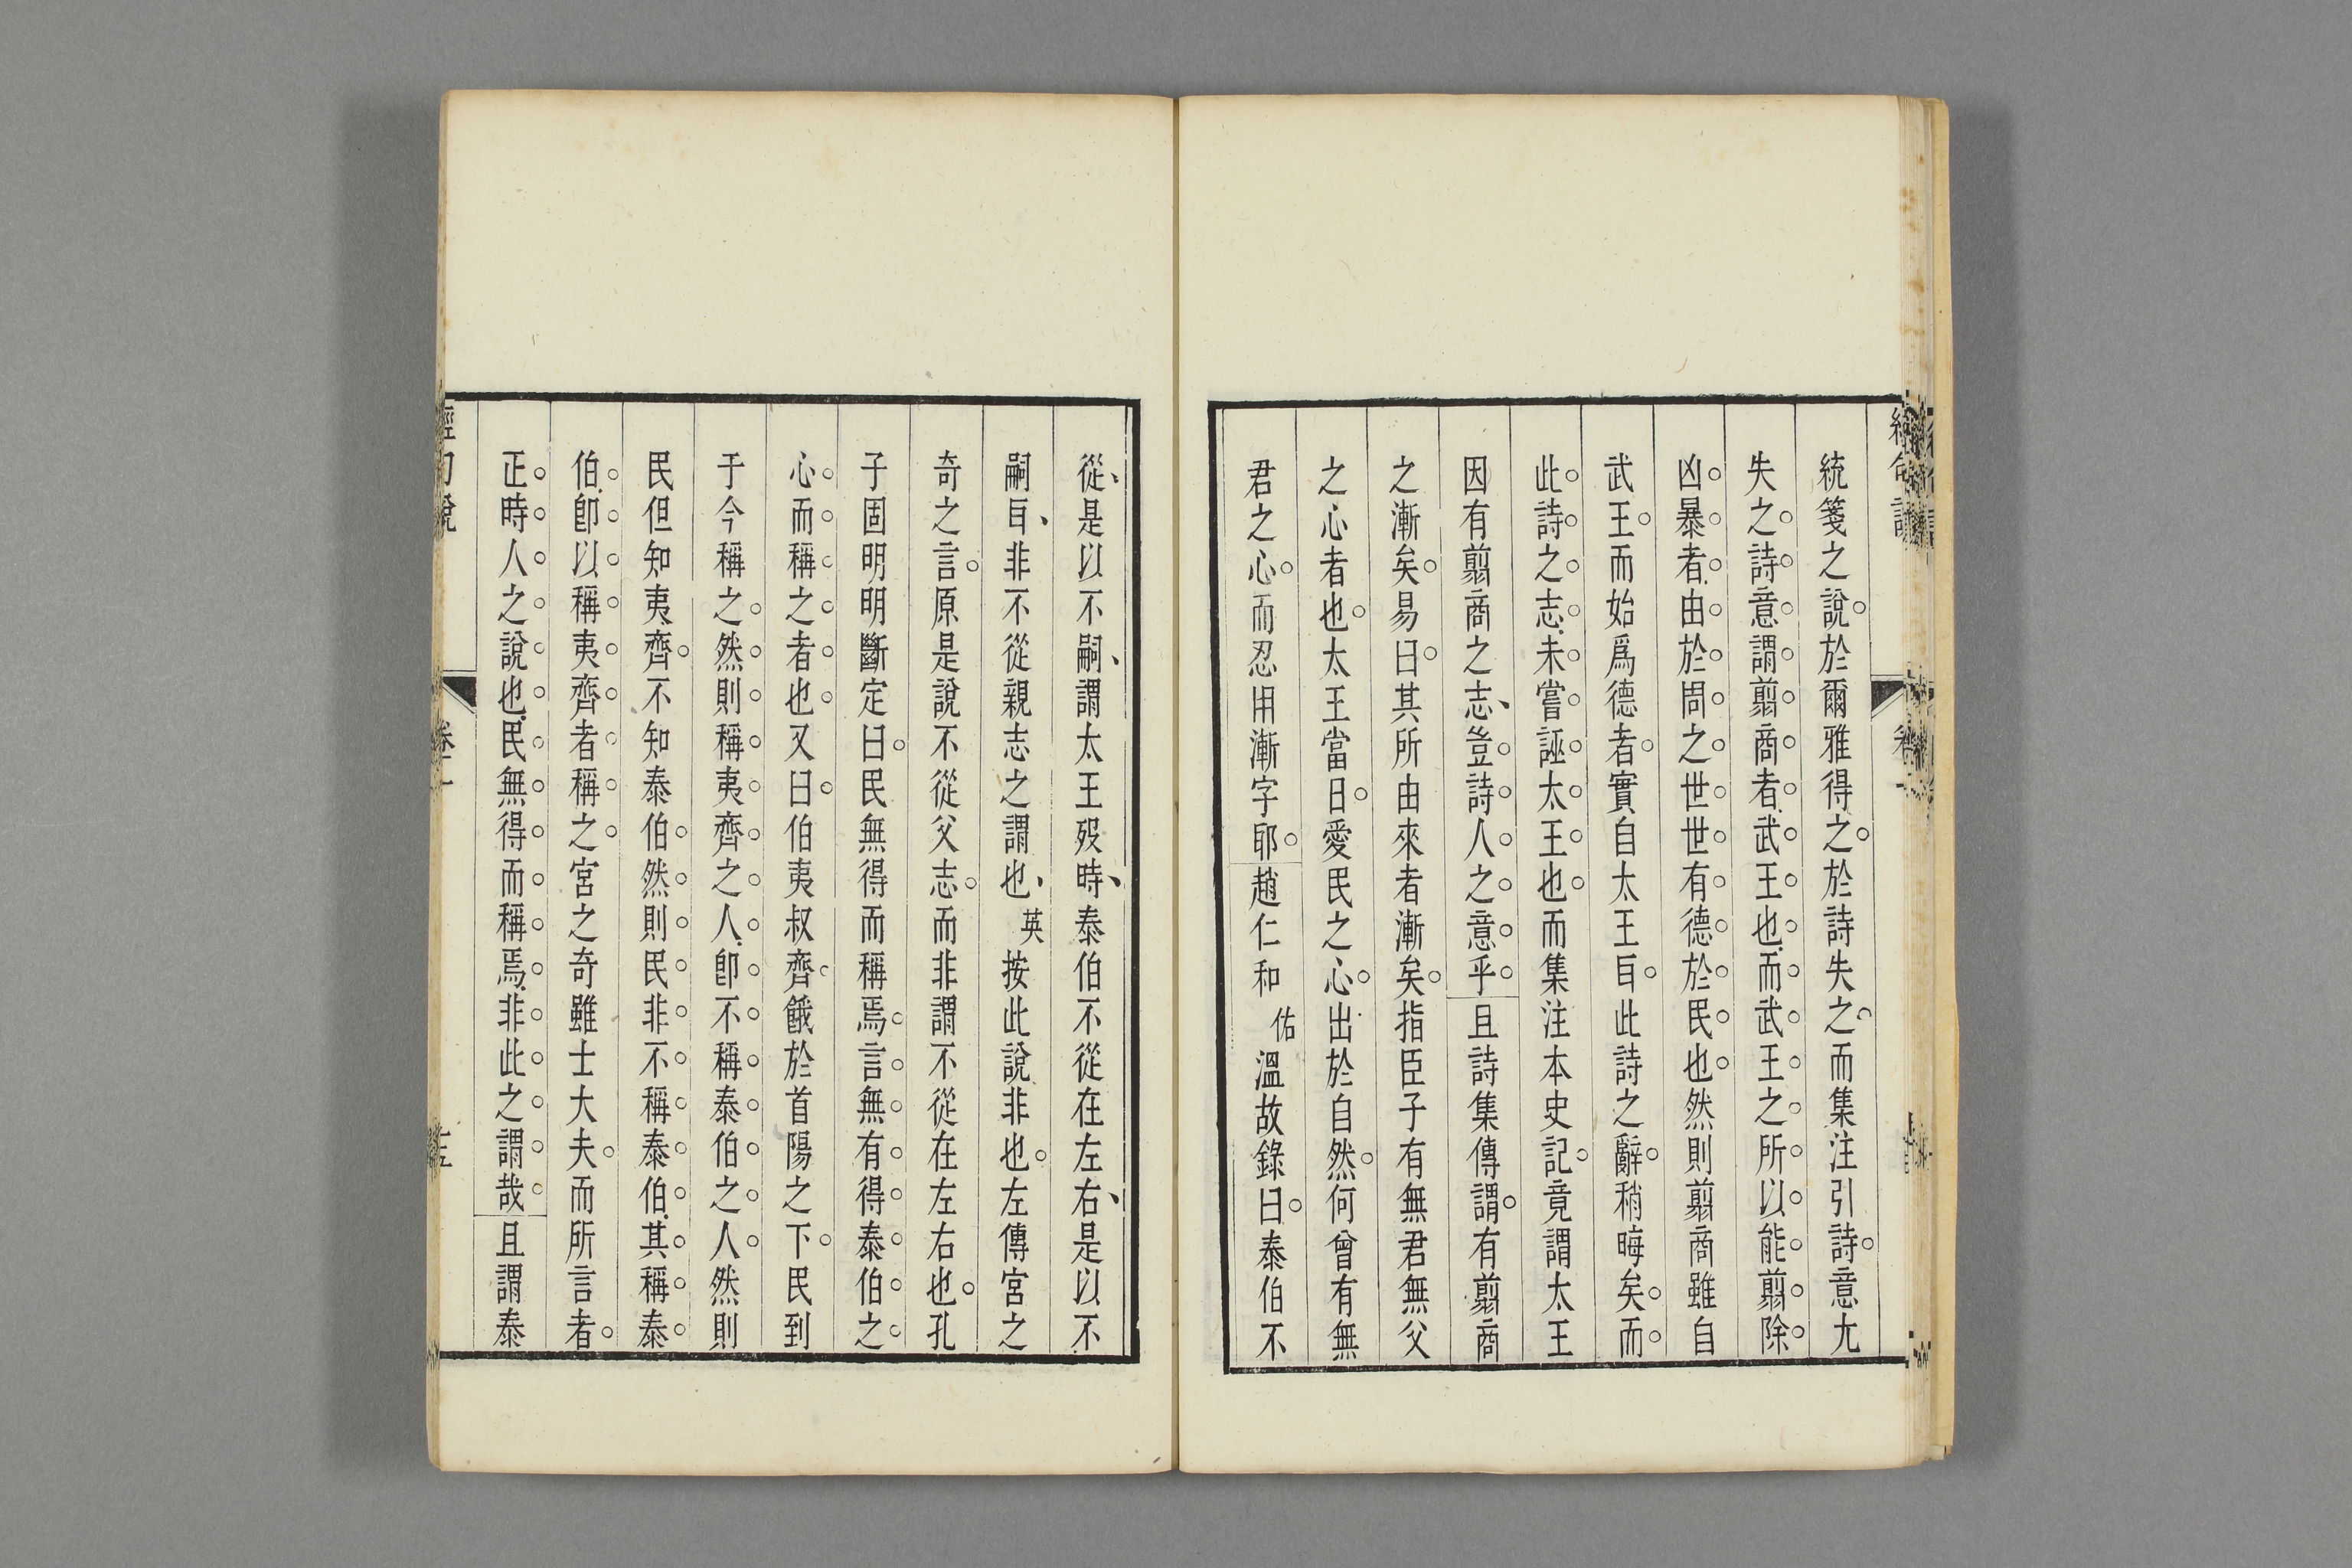 統箋之說於爾雅得之於詩失之而集注引詩意尢
失之詩意謂翦商者武王也而武王之所以能翦除
凶暴者由於周之世世有德於民也然則翦商雖自
武王而始爲德者實自太王㠯此詩之辭稍晦矣而
此詩之志未嘗誣太王也而集注本史記竟謂太王
因有翦商之志豈詩人之意乎且詩集傳謂有翦商
之漸矣易曰其所由來者漸矣指臣子有無君無父
之心者也太王當日愛民之心出於自然何曾有無
君之心而忍用漸字耶趙仁和佑溫故錄曰泰伯不
從是以不嗣謂太王歿時泰伯不從在左右是以不
嗣㠯非不從親志之謂也英按此說非也左傳宮之
奇之言原是說不從父志而非謂不從在左右也孔
子固明明斷定曰民無得而稱焉言無有得泰伯之
心而稱之者也又曰伯夷叔齊餓於首陽之下民到
于今稱之然則稱夷齊之人卽不稱泰伯之人然則
民但知夷齊不知泰伯然則民非不稱泰伯其稱泰
伯卽以稱夷齊者稱之宮之奇雖士大夫而所言者
正時人之說也民無得而稱焉非此之謂哉且謂泰
經句說
卷二